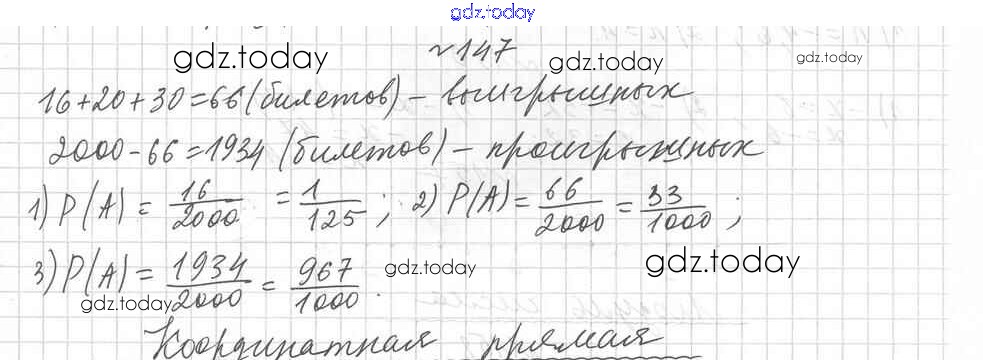 gdz.today
№147
gdz.today gdz.today gdz.today
16+20+30=66 (билетов) – выигрышных
2000-66=1934 (билетов) – проигрышных
1) P(A) = 16/2000 = 1/125 ; 2) P(A) = 66/2000 = 33/1000 ;
gdz.today gdz.today
3) P(A) = 1934/2000 = 967/1000 .
gdz.today
Координатная прямая